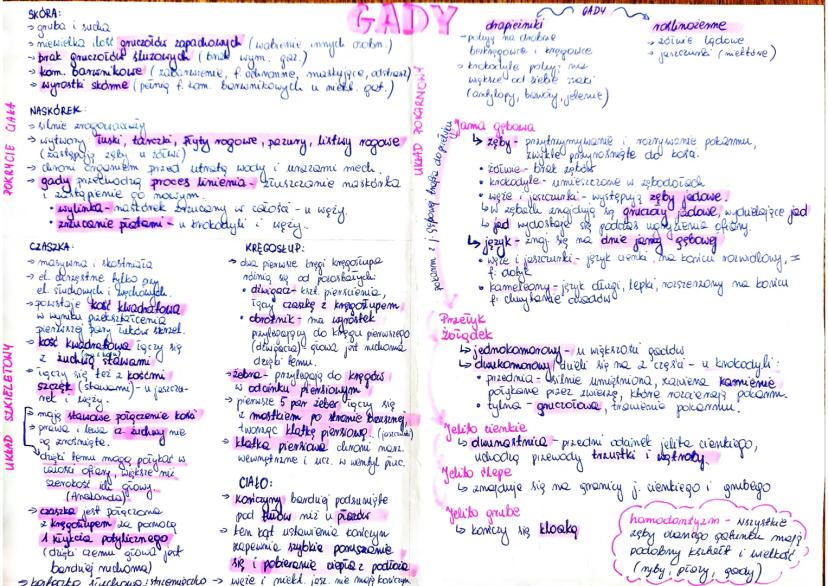 GADY
POKRYCIE CIAŁA
SKÓRA:
→ gruba i sucha
→ niewielka ilość gruczołów zapachowych (wabienie innych osobn.)
→ brak gruczołów śluzowych (brak wym. gaz.)
→ kom. barwnikowe (zabarwienie, f. ochronne, maskujące, odstrasz)
→ wyrostki skórne (pełnią f. kom. barwnikowych u niekt. gat.)
NASKÓREK:
→ silnie zrogowaciały
→ wytwory łuski, tarczki, płyty rogowe, pazury, listwy rogowe
(zastępują zęby u żółwi)
→ chroni organizm przed utratą wody i urazami mech.
→ gady przechodzą proces linienia - złuszczanie naskórka
i zastąpienie go nowym.
• wylinka - naskórek zrzucany w całości - u węży.
• zrzucanie płatami - u krokodyli i węży.
UKŁAD SZKIELETOWY
CZASZKA:
→ masywna i skostniała
→ el. chrzęstne tylko przy
el. słuchowych i węchowych.
→ powstaje kość kwadratowa
w wyniku przekształcenia
pierwszej pary łuków skrzel.
→ kość kwadratowa łączy się
z żuchwą stawami.
→ łączy się też z kośćmi
szczęk (stawami) - u jaszczu-
rek i węży.
→ mają stawowe połączenie kości
→ prawa i lewa cz. żuchwy nie
są zrośnięte.
dzięki temu mogą połykać w
całości ofiary, większe niż
szerokość ich głowy.
(Anakonda)
→ czaszka jest połączona
z kręgosłupem za pomocą
1 kłykcia potylicznego
(dzięki czemu głowa jest
bardziej ruchoma)
KRĘGOSŁUP:
→ dwa pierwsze kręgi kręgosłupa
różnią się od pozostałych:
• dźwigacz - kszt. pierścienia,
łączy czaszkę z kręgosłupem
• obrotnik - ma wyrostek
przylegający do kręgu pierwszego
(dźwigacza) głowa jest ruchoma
dzięki temu.
→ żebra - przylegają do kręgów
w odcinku piersiowym
→ pierwsze 5 par żeber łączy się
z mostkiem po stronie brzusznej,
tworząc klatkę piersiową. (jaszczurki)
→ klatka piersiowa chroni narz.
wewnętrzne i ucz. w wentyl płuc.
CIAŁO:
→ kończyny bardziej podsunięte
pod tułów niż u płazów
→ ten kąt ustawienia kończyn
zapewnia szybkie poruszanie
się i pobieranie ciepła z podłoża
→ węże i niekt. jasz. nie mają kończyn
UKŁAD POKARMOWY
GADY
drapieżniki
→ polują na drobne
bezkręgowce i kręgowce
→ krokodyle polują na
większe od siebie ssaki
(antylopy, bawoły, jelenie)
roślinożerne
→ żółwie lądowe
→ jaszczurki (niektóre)
pokarm z j. gębowej trafia do przełyku
Jama gębowa
↳ zęby - przytrzymywanie i rozrywanie pokarmu,
zwykle przyrośnięte do kości.
• żółwie - brak zębów
• krokodyle - umieszczone w zębodołach
• węże i jaszczurki - występują zęby jadowe.
↳ w zębach znajdują się gruczoły jadowe, wydzielające jad
↳ jad wydostaje się podczas ugryzienia ofiary.
↳ język - znaj. się na dnie jamy gębowej
• węże i jaszczurki - język cienki, na końcu rozdwojony, =
f. dotyk
• kameleony - język długi, lepki, rozszerzony na końcu
f. chwytanie owadów
Przełyk
Żołądek
↳ jednokomorowy - u większości gadów
↳ dwukomorowy/dzieli się na 2 części - u krokodyli:
• przednia - silnie umięśniona, zawiera kamienie
połykane przez zwierzę, które rozcierają pokarm.
• tylna - gruczołowa, trawienie pokarmu.
Jelito cienkie
↳ dwunastnica - przedni odcinek jelita cienkiego,
uchodzą przewody trzustki i wątroby.
Jelito ślepe
↳ znajduje się na granicy j. cienkiego i grubego
Jelito grube
↳ kończy się kloaką
homodontyzm - wszystkie
zęby danego gatunku mają
podobny kształt i wielkość
(ryby, płazy, gady)